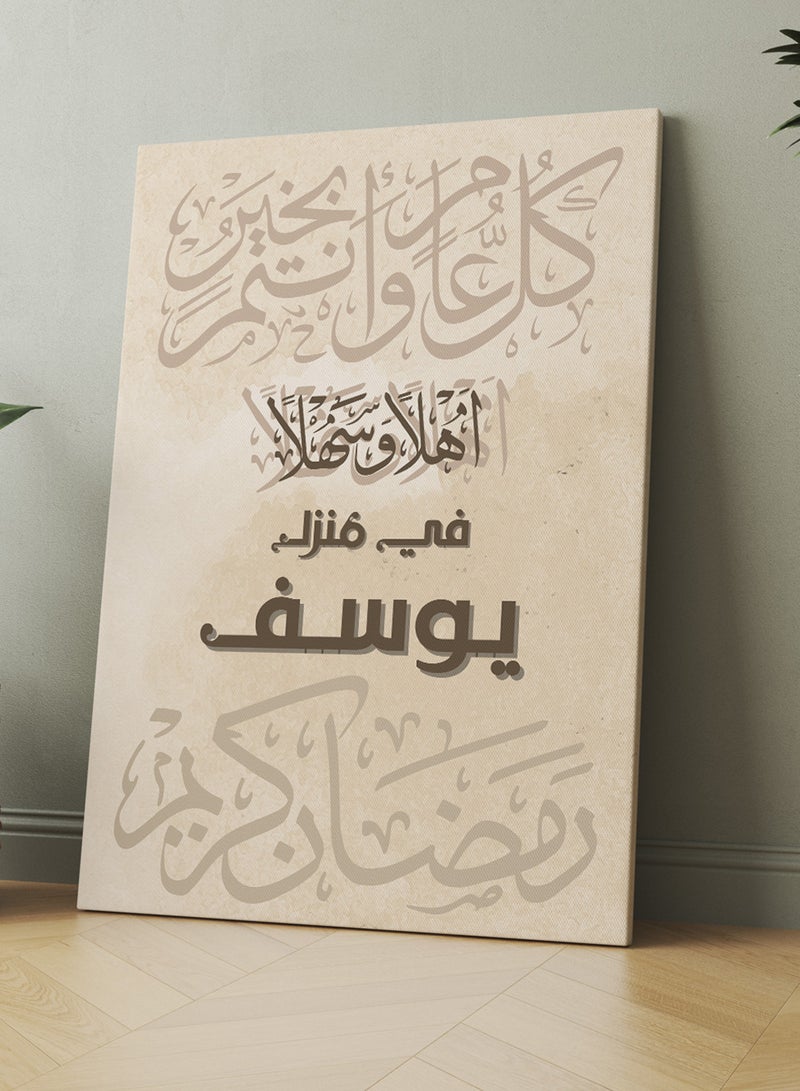 كُل عَام وَأنتُم بخَير
أهْلاً وَسَهْلاً
في منزل
يوسف
رَمَضَان كَريم